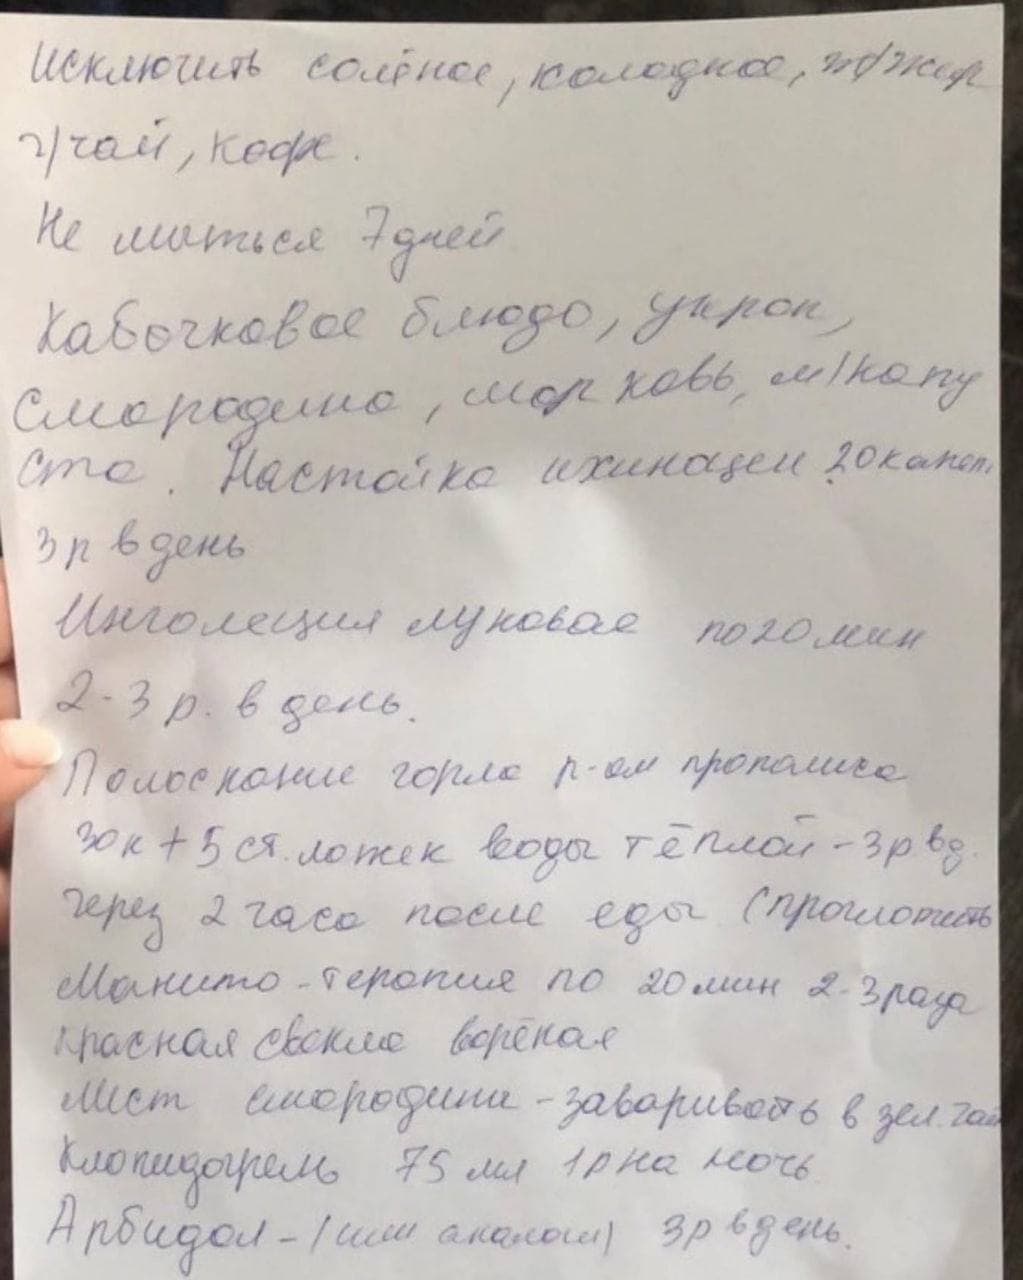 Исключить солёное, холодное, ж/жар
ч/чай, кофе.
Не мыться 7 дней
Кабачковое блюдо, укроп,
Смородина, морковь, м/капу
ста. Настойка ихинацеи 20 капел.
3 р в день
Инголяция луковая по 20 мин
2-3 р. в день.
Полоскание горла р-ом прополиса
30 к + 5 ст. ложек воды тёплой - 3 р в д.
Через 2 часа после еды (проглотить
Манито-терапия по 20 мин 2-3 раза
Красная свекла варёная
Лист смородины - заваривать в зел. чай
Клопидогрель 75 мл 1 р на ночь
Арбидол - (или аналоги) 3 р в день.